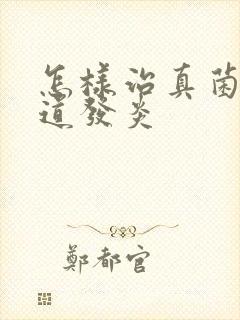 怎樣治真菌
道發炎
鄭都官